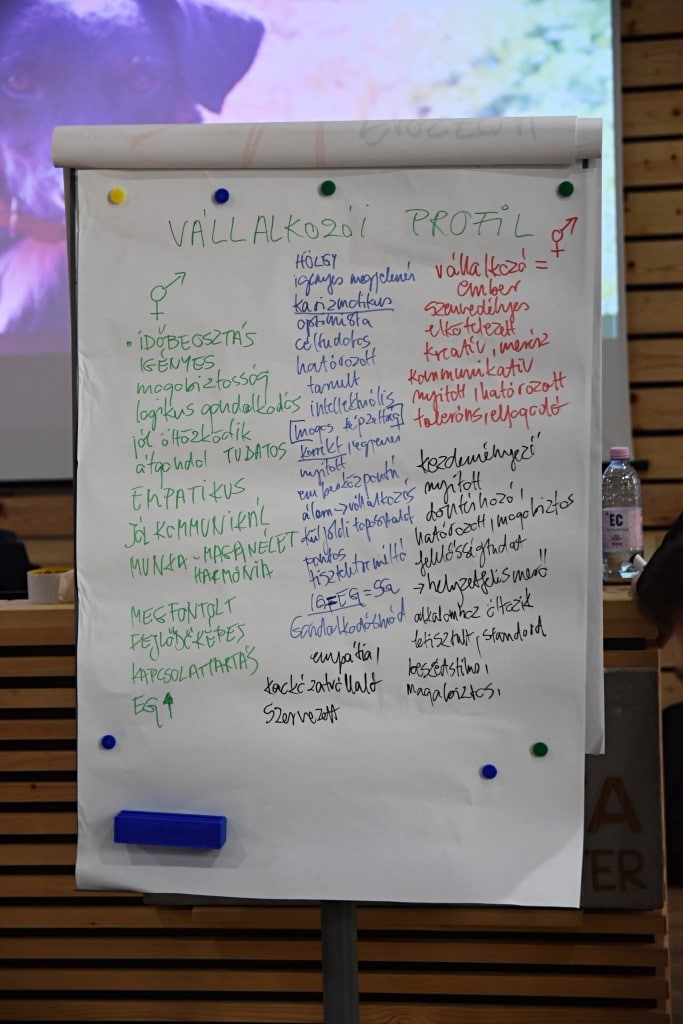 VÁLLALKOZÓI PROFIL
• IDŐBEOSZTÁS
IGÉNYES
magabiztosság
logikus gondolkodás
jól öltözködik
átgondol TUDATOS
EMPATIKUS
JÓL KOMMUNIKÁL
MUNKA - MAGÁNÉLET
HARMÓNIA
MEGFONTOLT
FEJLŐDŐKÉPES
KAPCSOLATTARTÁS
EQ ↑
HÖLGY
igényes megjelenés
karizmatikus
optimista
céltudatos
határozott
tanult
intellektuális
magas képzettség
korrekt, egyenes
nyitott
emberközpontú
álom → vállalkozás
külföldi tapasztalat
pontos
tisztelettudó
IQ = EQ = SQ
Gondolkodásmód
empátia,
kockázatvállaló
Szervezett
vállalkozó =
ember
szenvedélyes
elkötelezett
kreatív, merész
kommunikatív
nyitott, határozott
toleráns, elfogadó
kezdeményező
nyitott
döntéshozó,
határozott, magabiztos
felelősségtudat
→ helyzetfelismerő
alkalomhoz öltözik
letisztult, standard
beszédstílus,
magabiztos,
EC
A
TER